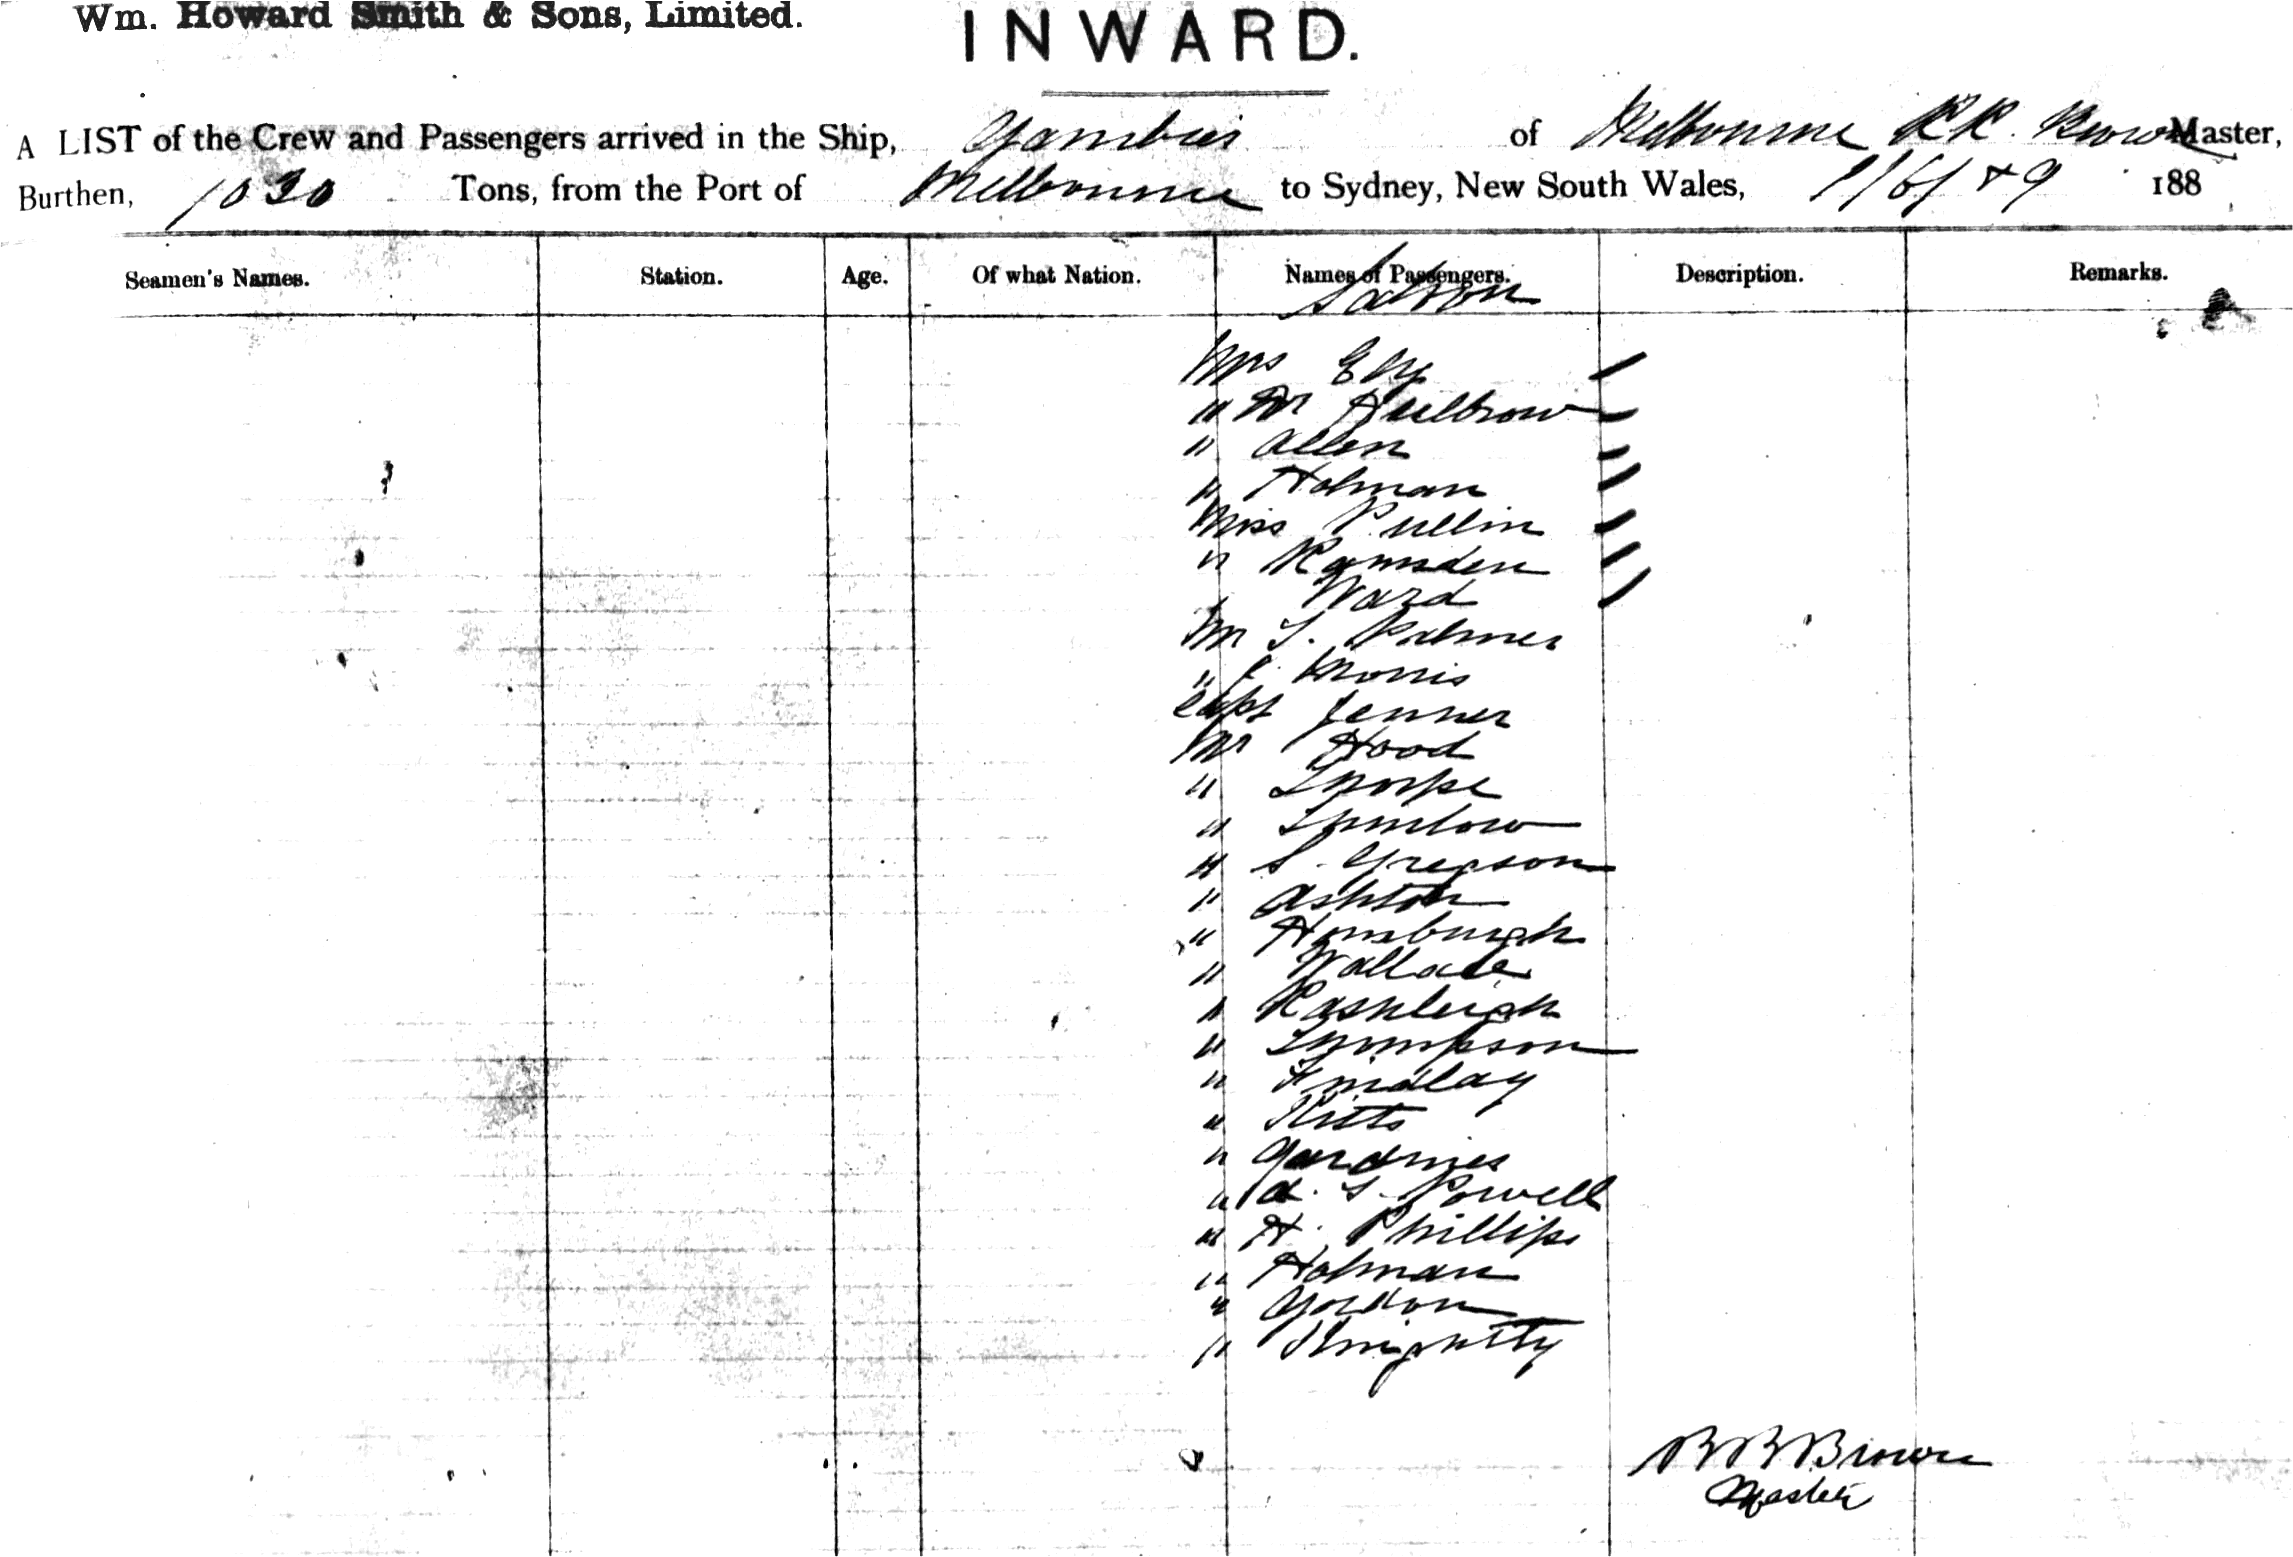 Wm. Howard Smith & Sons, Limited.
INWARD.
A LIST of the Crew and Passengers arrived in the Ship, Gambier of Melbourne R R. Brown Master,
Burthen, 1030 Tons, from the Port of Melbourne to Sydney, New South Wales, 9/6/89 188
Seamen's Names. Station. Age. Of what Nation. Names of Passengers. Description. Remarks.
Saloon
Mrs Ely
" M
" Allen
" Holman
Miss Pullin
" Ramsden
" Ward
Mr T. Palmer
" J. Morris
Capt Jenner
Mr Hood
" Thorpe
"
" S. Gregson
" Ashton
" Horsburgh
" Wallace
" Rashleigh
" Thompson
" Finlay
" Kitts
" Gardiner
" A. S. Powell
" H. Phillips
" Holman
" Gordon
" Knightly
R R Brown
Master